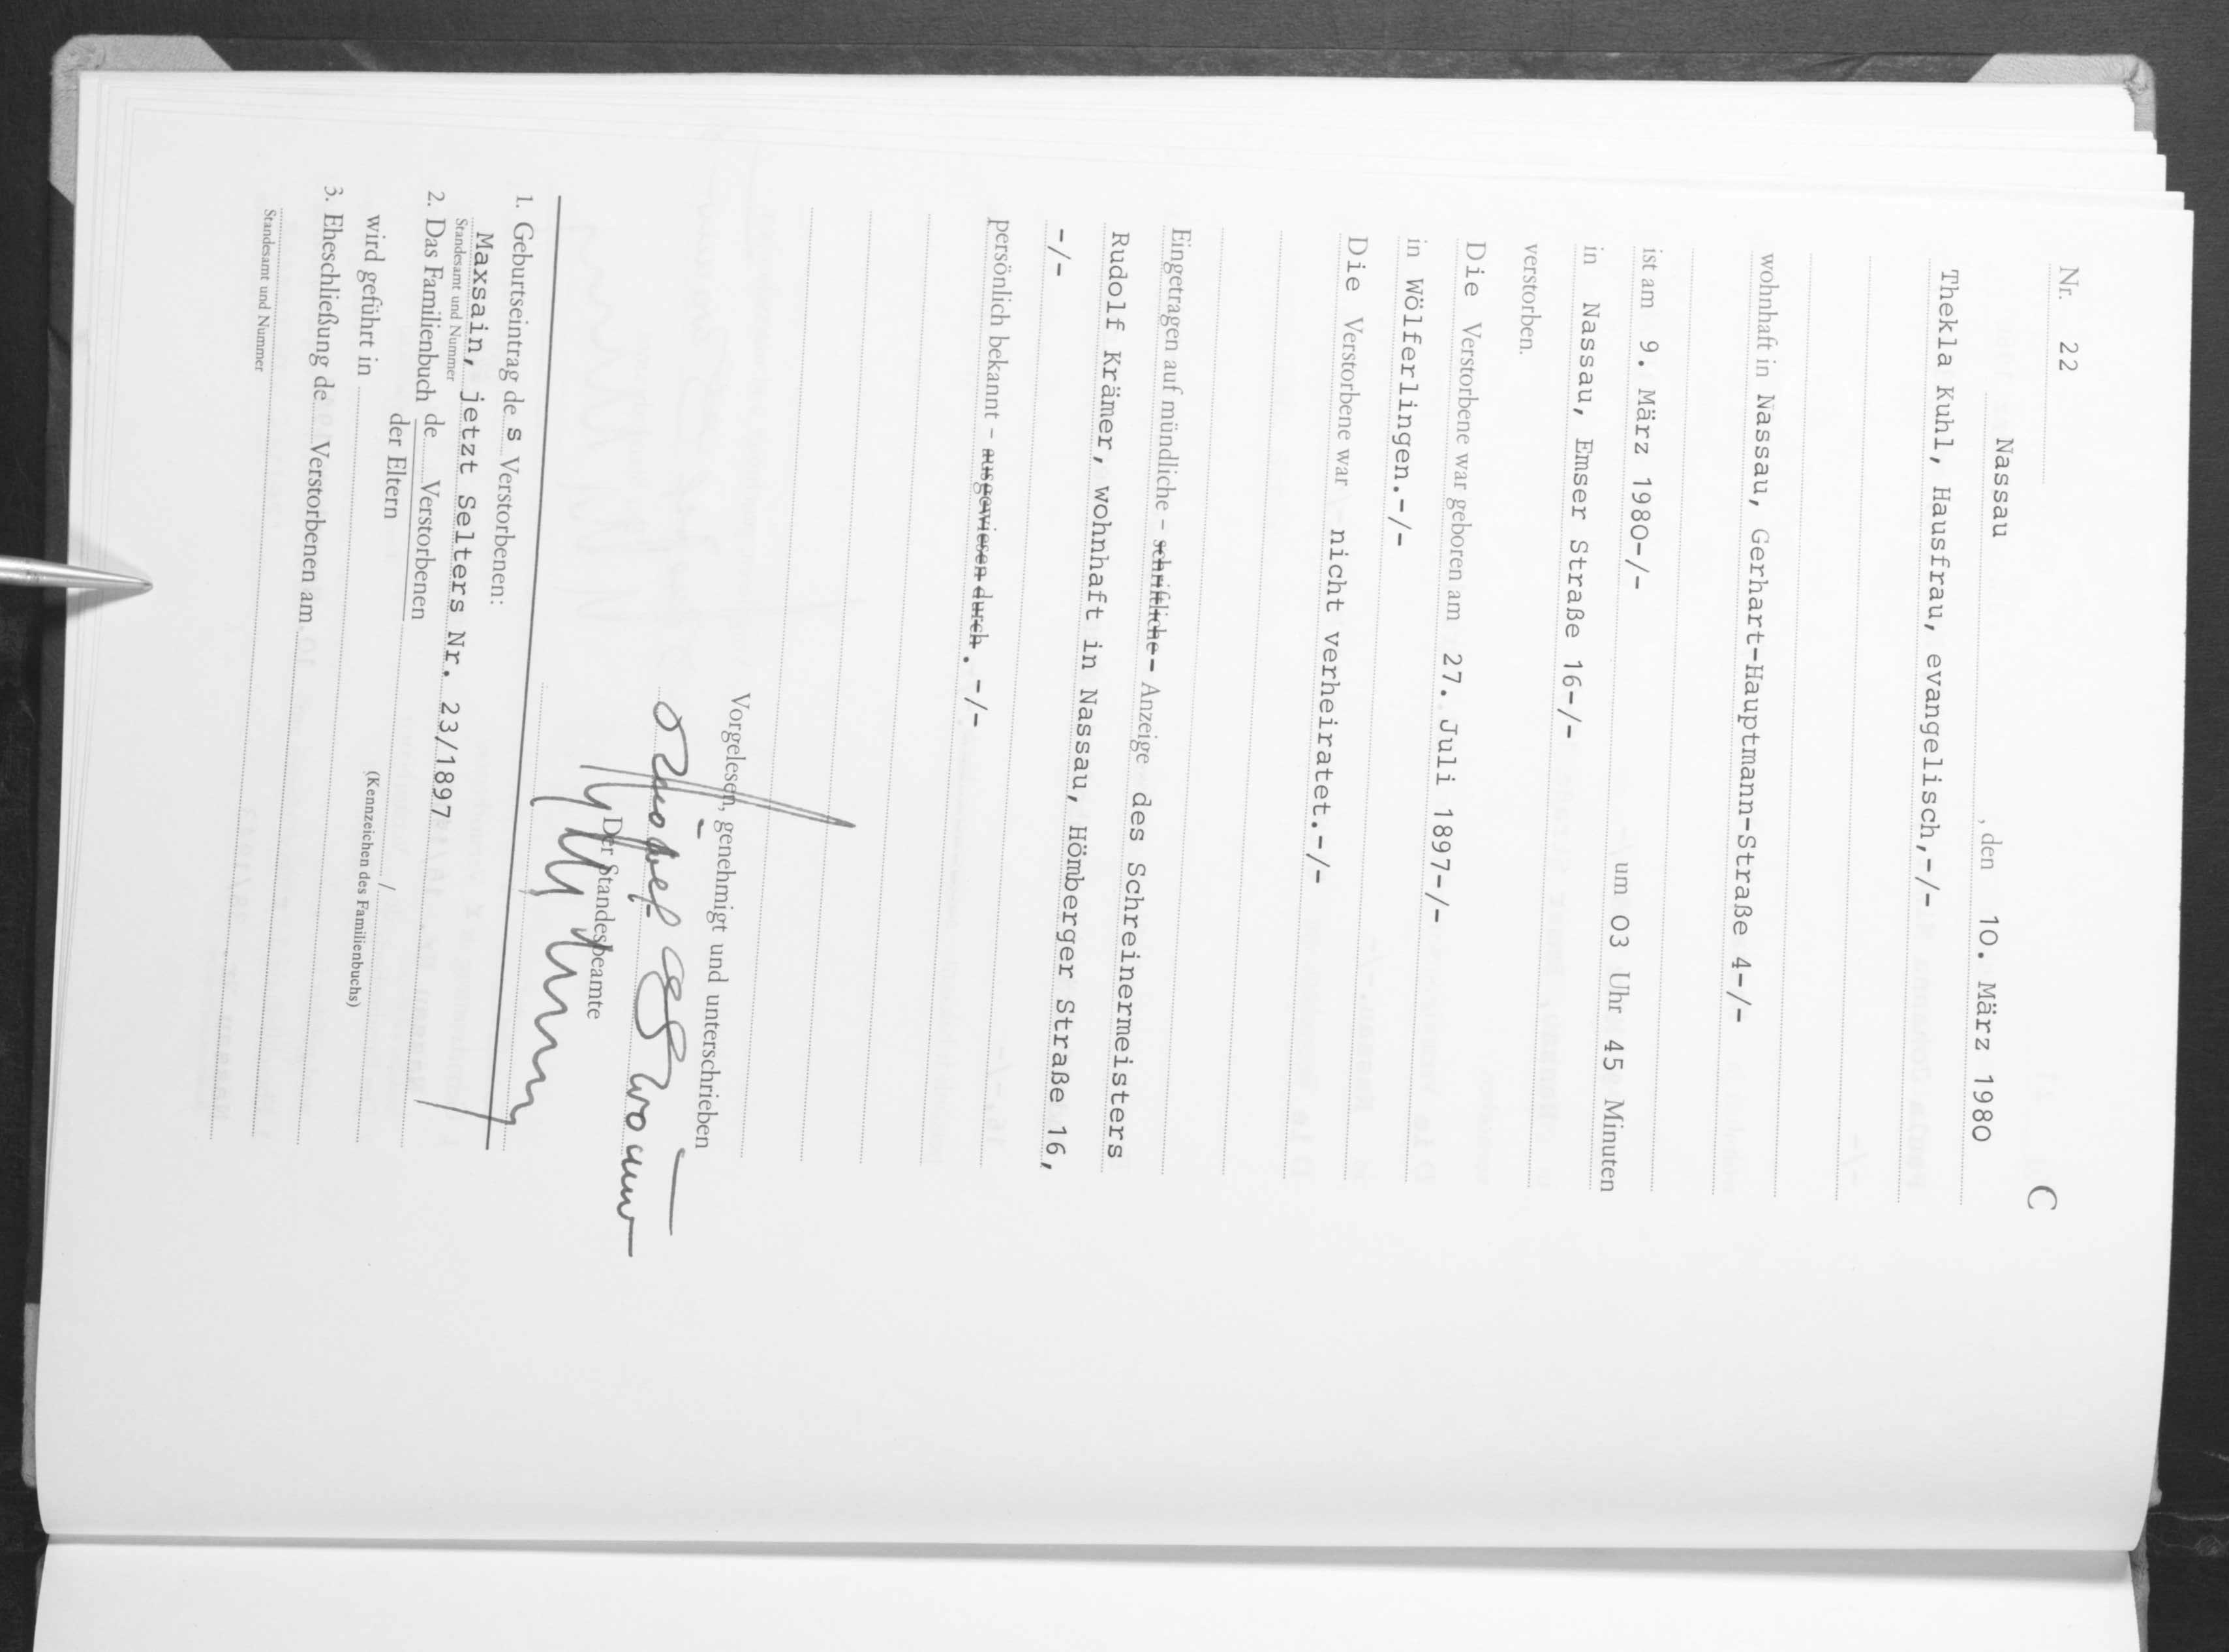 C
Nr. 22
Nassau, den 10. März 1980
Thekla Kuhl, Hausfrau, evangelisch,-/-
wohnhaft in Nassau, Gerhart-Hauptmann-Straße 4-/-
ist am 9. März 1980-/- um 03 Uhr 45 Minuten
in Nassau, Emser Straße 16-/-
verstorben.
Die Verstorbene war geboren am 27. Juli 1897-/-
in Wölferlingen.-/-
Die Verstorbene war nicht verheiratet.-/-
Eingetragen auf mündliche – schriftliche – Anzeige des Schreinermeisters
Rudolf Krämer, wohnhaft in Nassau, Hömberger Straße 16,
-/-
persönlich bekannt – ausgewiesen durch. -/-
Vorgelesen, genehmigt und unterschrieben
Der Standesbeamte
1. Geburtseintrag des Verstorbenen:
Maxsain, jetzt Selters Nr. 23/1897
Standesamt und Nummer
2. Das Familienbuch de Verstorbenen
der Eltern
wird geführt in /
(Kennzeichen des Familienbuchs)
3. Eheschließung de Verstorbenen am
Standesamt und Nummer